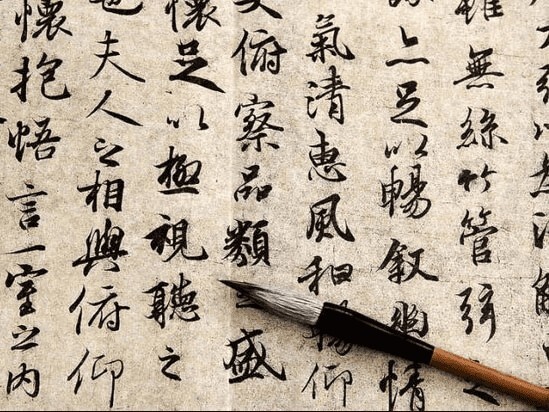 雖無絲竹管弦之
亦足以暢叙幽情
氣清惠風和暢仰
大俯察品類之盛
懷足以極視聽之
也夫人之相與俯仰
懷抱悟言一室之內